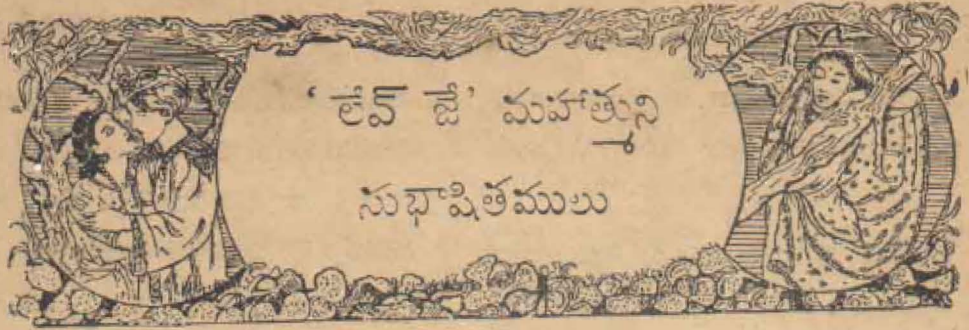 ‘లేవ్ జే’ మహాత్ముని
సుభాషితములు